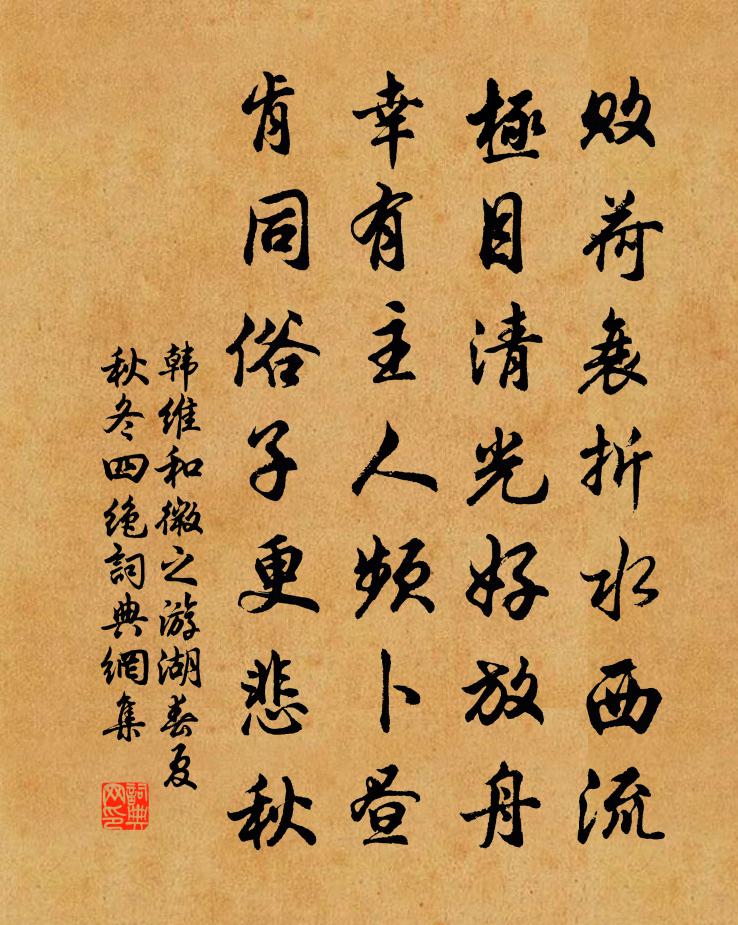 败荷衰折水西流
極目清光好放舟
幸有主人频卜昼
肯同俗子更悲秋
韩维和微之游湖春夏
秋冬四绝詞典網集
詞典网印